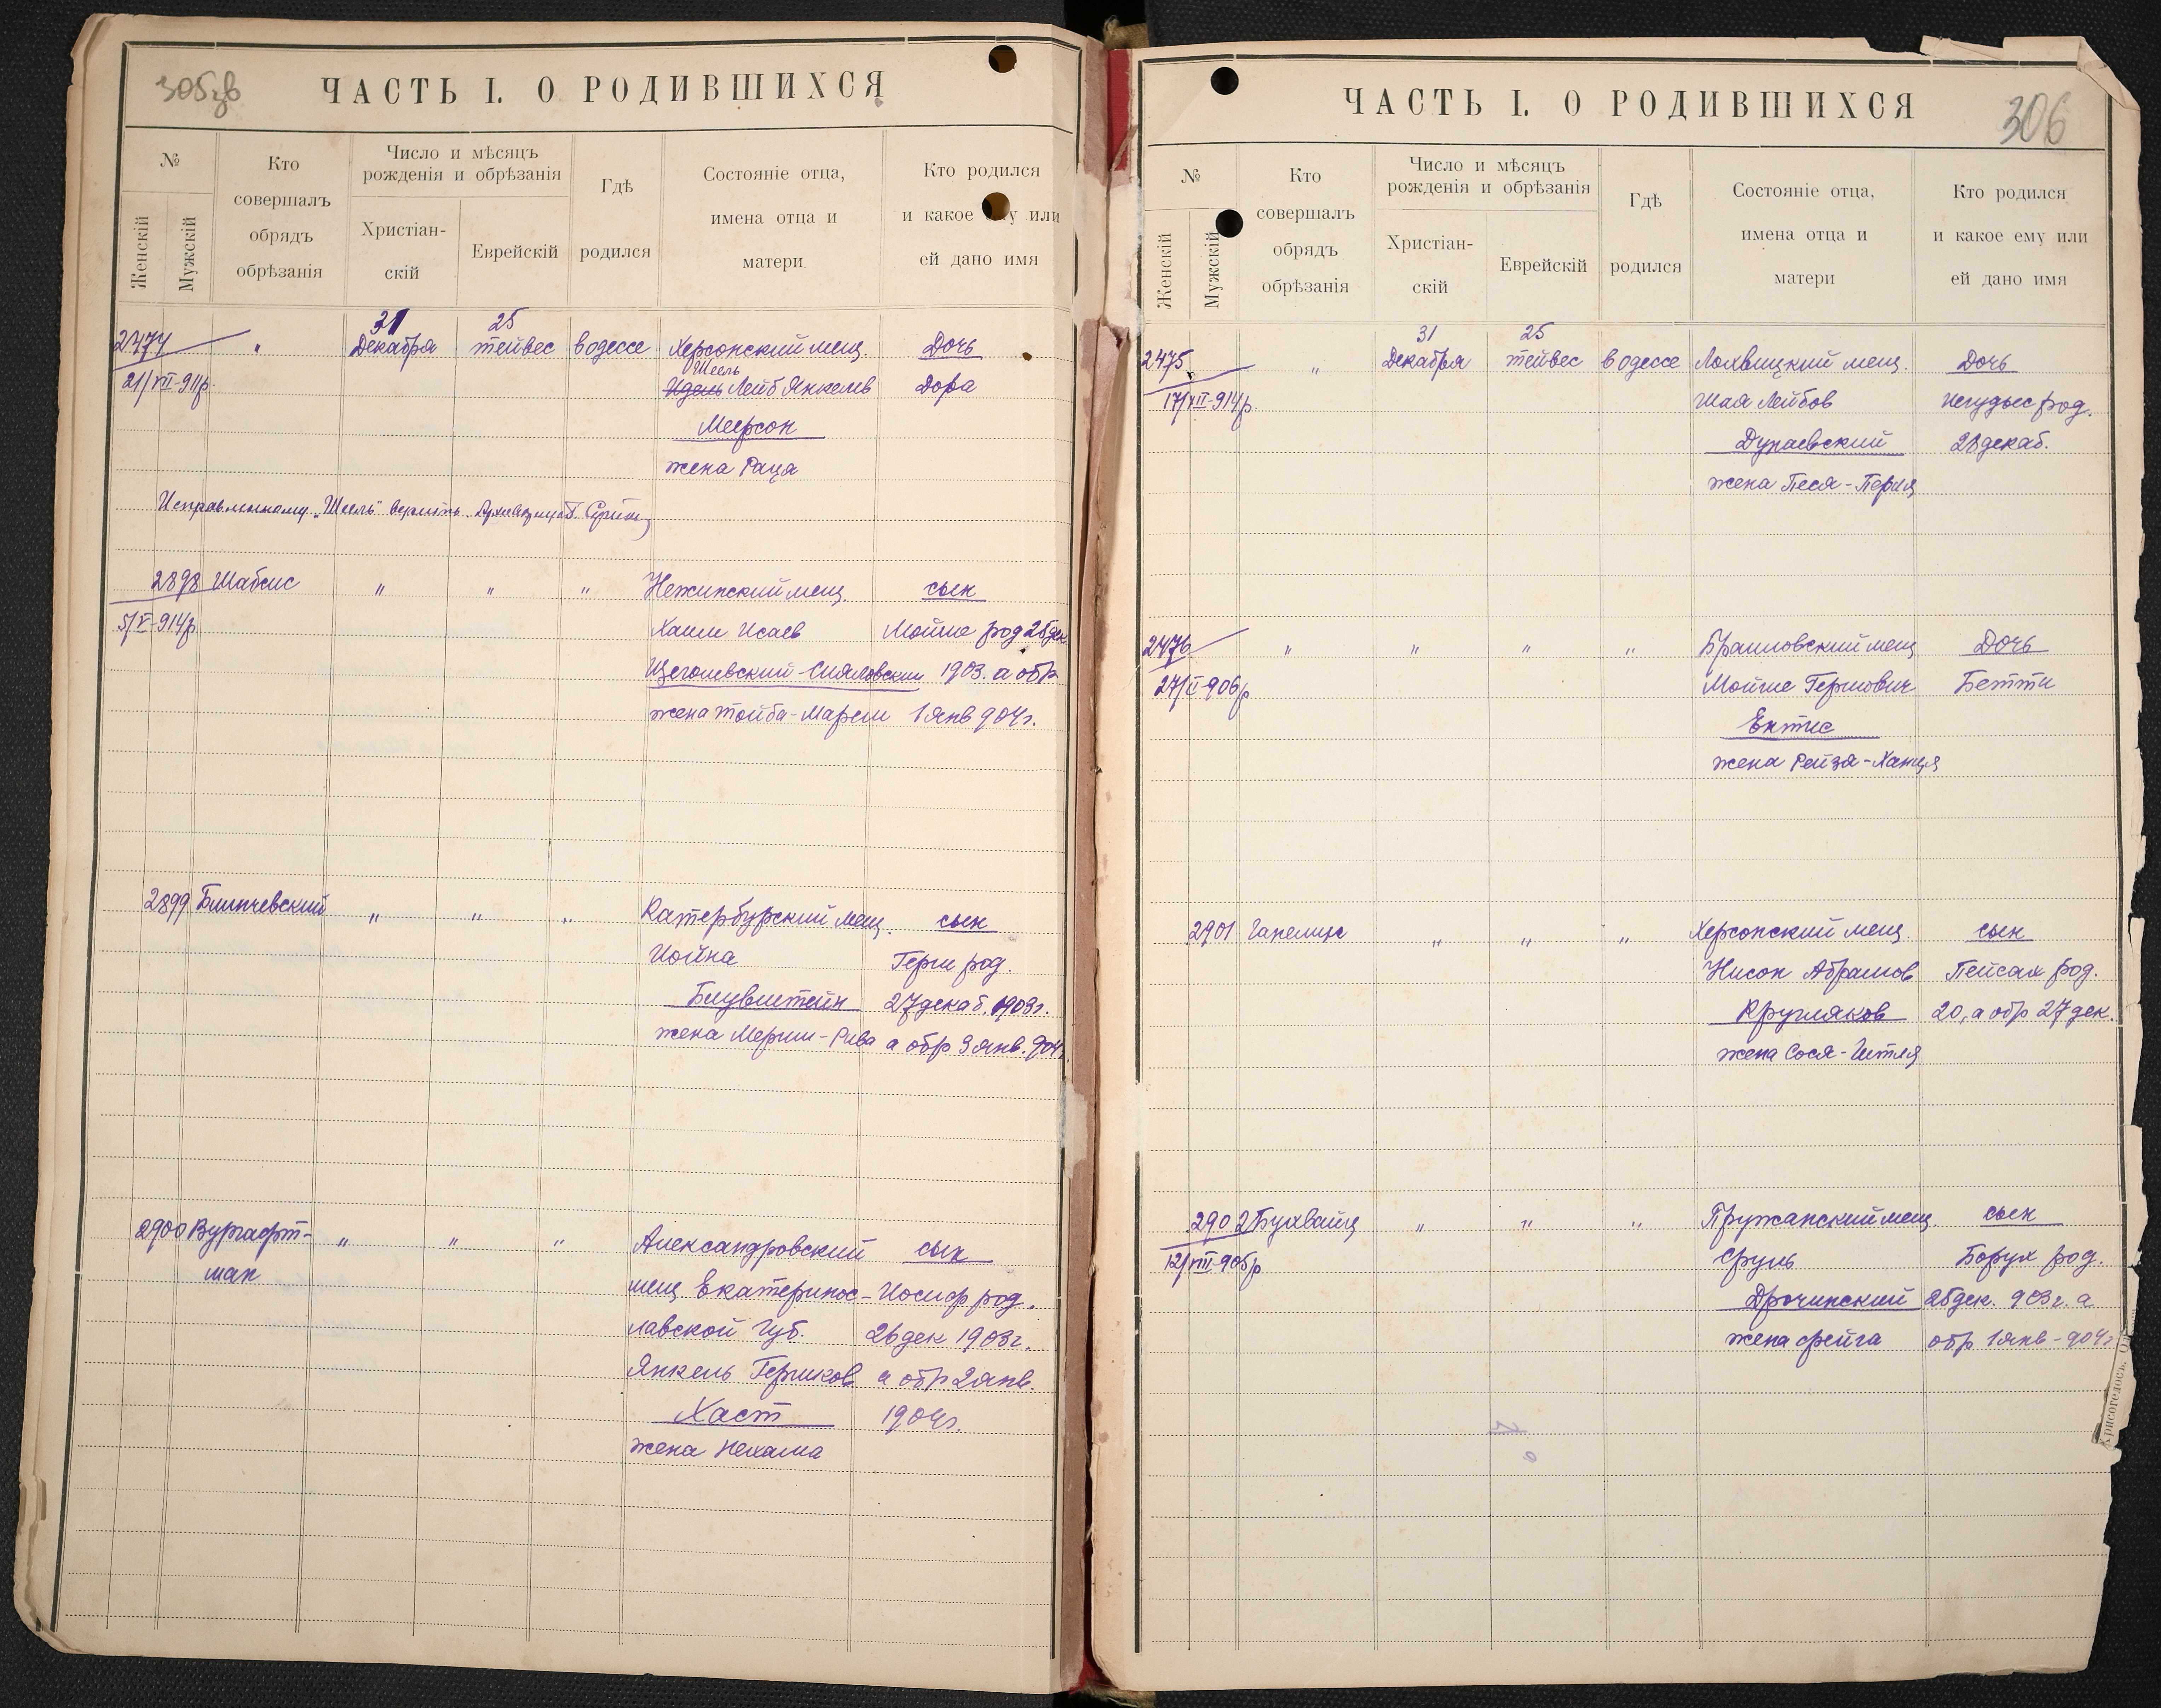 305 зв
ЧАСТЬ I. О РОДИВШИХСЯ
№
Женскій
Мужскій
Кто совершалъ обрядъ обрѣзанія
Число и мѣсяцъ рожденія и обрѣзанія
Христіан-скій
Еврейскій
Гдѣ родился
Состояніе отца, имена отца и матери
Кто родился и какое ему или ей дано имя
31 25
2474 " Декабря тейвес в Одессе Херсонский мещ. Дочь
Шеель
21/VII-911 р. Идель Лейб Янкелев Дора
Меерсон
жена Раца
Исправленному "Шеель" верить
2898 Шабсис " " " Нежинский мещ. сын
5/V-914 р Хаим Исаев Мойше род 25 дек
Щеголевский-Сияловский 1903. а обр.
жена Тойба-Мареш 1 янв 904 г.
2899 " " " Катербурский мещ. сын
Иойна Герш род.
Блувштейн 27 декаб. 1903 г.
жена Мериш-Рива а обр 3 янв. 904
2900 Вургафт- " " " Александровский сын
ман мещ Екатеринос- Иосиф род.
лавской губ. 26 дек 1903 г.
Янкель Гершков а обр 2 янв.
Хаст 1904 г.
жена Нехама
306
ЧАСТЬ I. О РОДИВШИХСЯ
№
Женскій
Мужскій
Кто совершалъ обрядъ обрѣзанія
Число и мѣсяцъ рожденія и обрѣзанія
Христіан-скій
Еврейскій
Гдѣ родился
Состояніе отца, имена отца и матери
Кто родился и какое ему или ей дано имя
31 25
2475 " Декабря тейвес в Одессе Лохвицкий мещ. Дочь
17/XII-914 р. Шая Лейбов Иегудыс род.
Дунаевский 28 декаб.
жена Песя-Перля
2476 " " " " Браиловский мещ Дочь
27/II-906 р Мойше Гершович Бетти
Ектис
жена Рейза-Ханця
2901 Гапелик " " " Херсонский мещ. сын
Нисон Абрамов Пейсах род.
Кругляков 20, а обр 27 дек.
жена Сося-Гитля
2902 Бухвайц " " " Пружанский мещ. сын
12/VIII-905 р Сруль Борух род.
Дрочинский 25 дек. 903 г. а
жена Фейга обр 1 янв-904 г